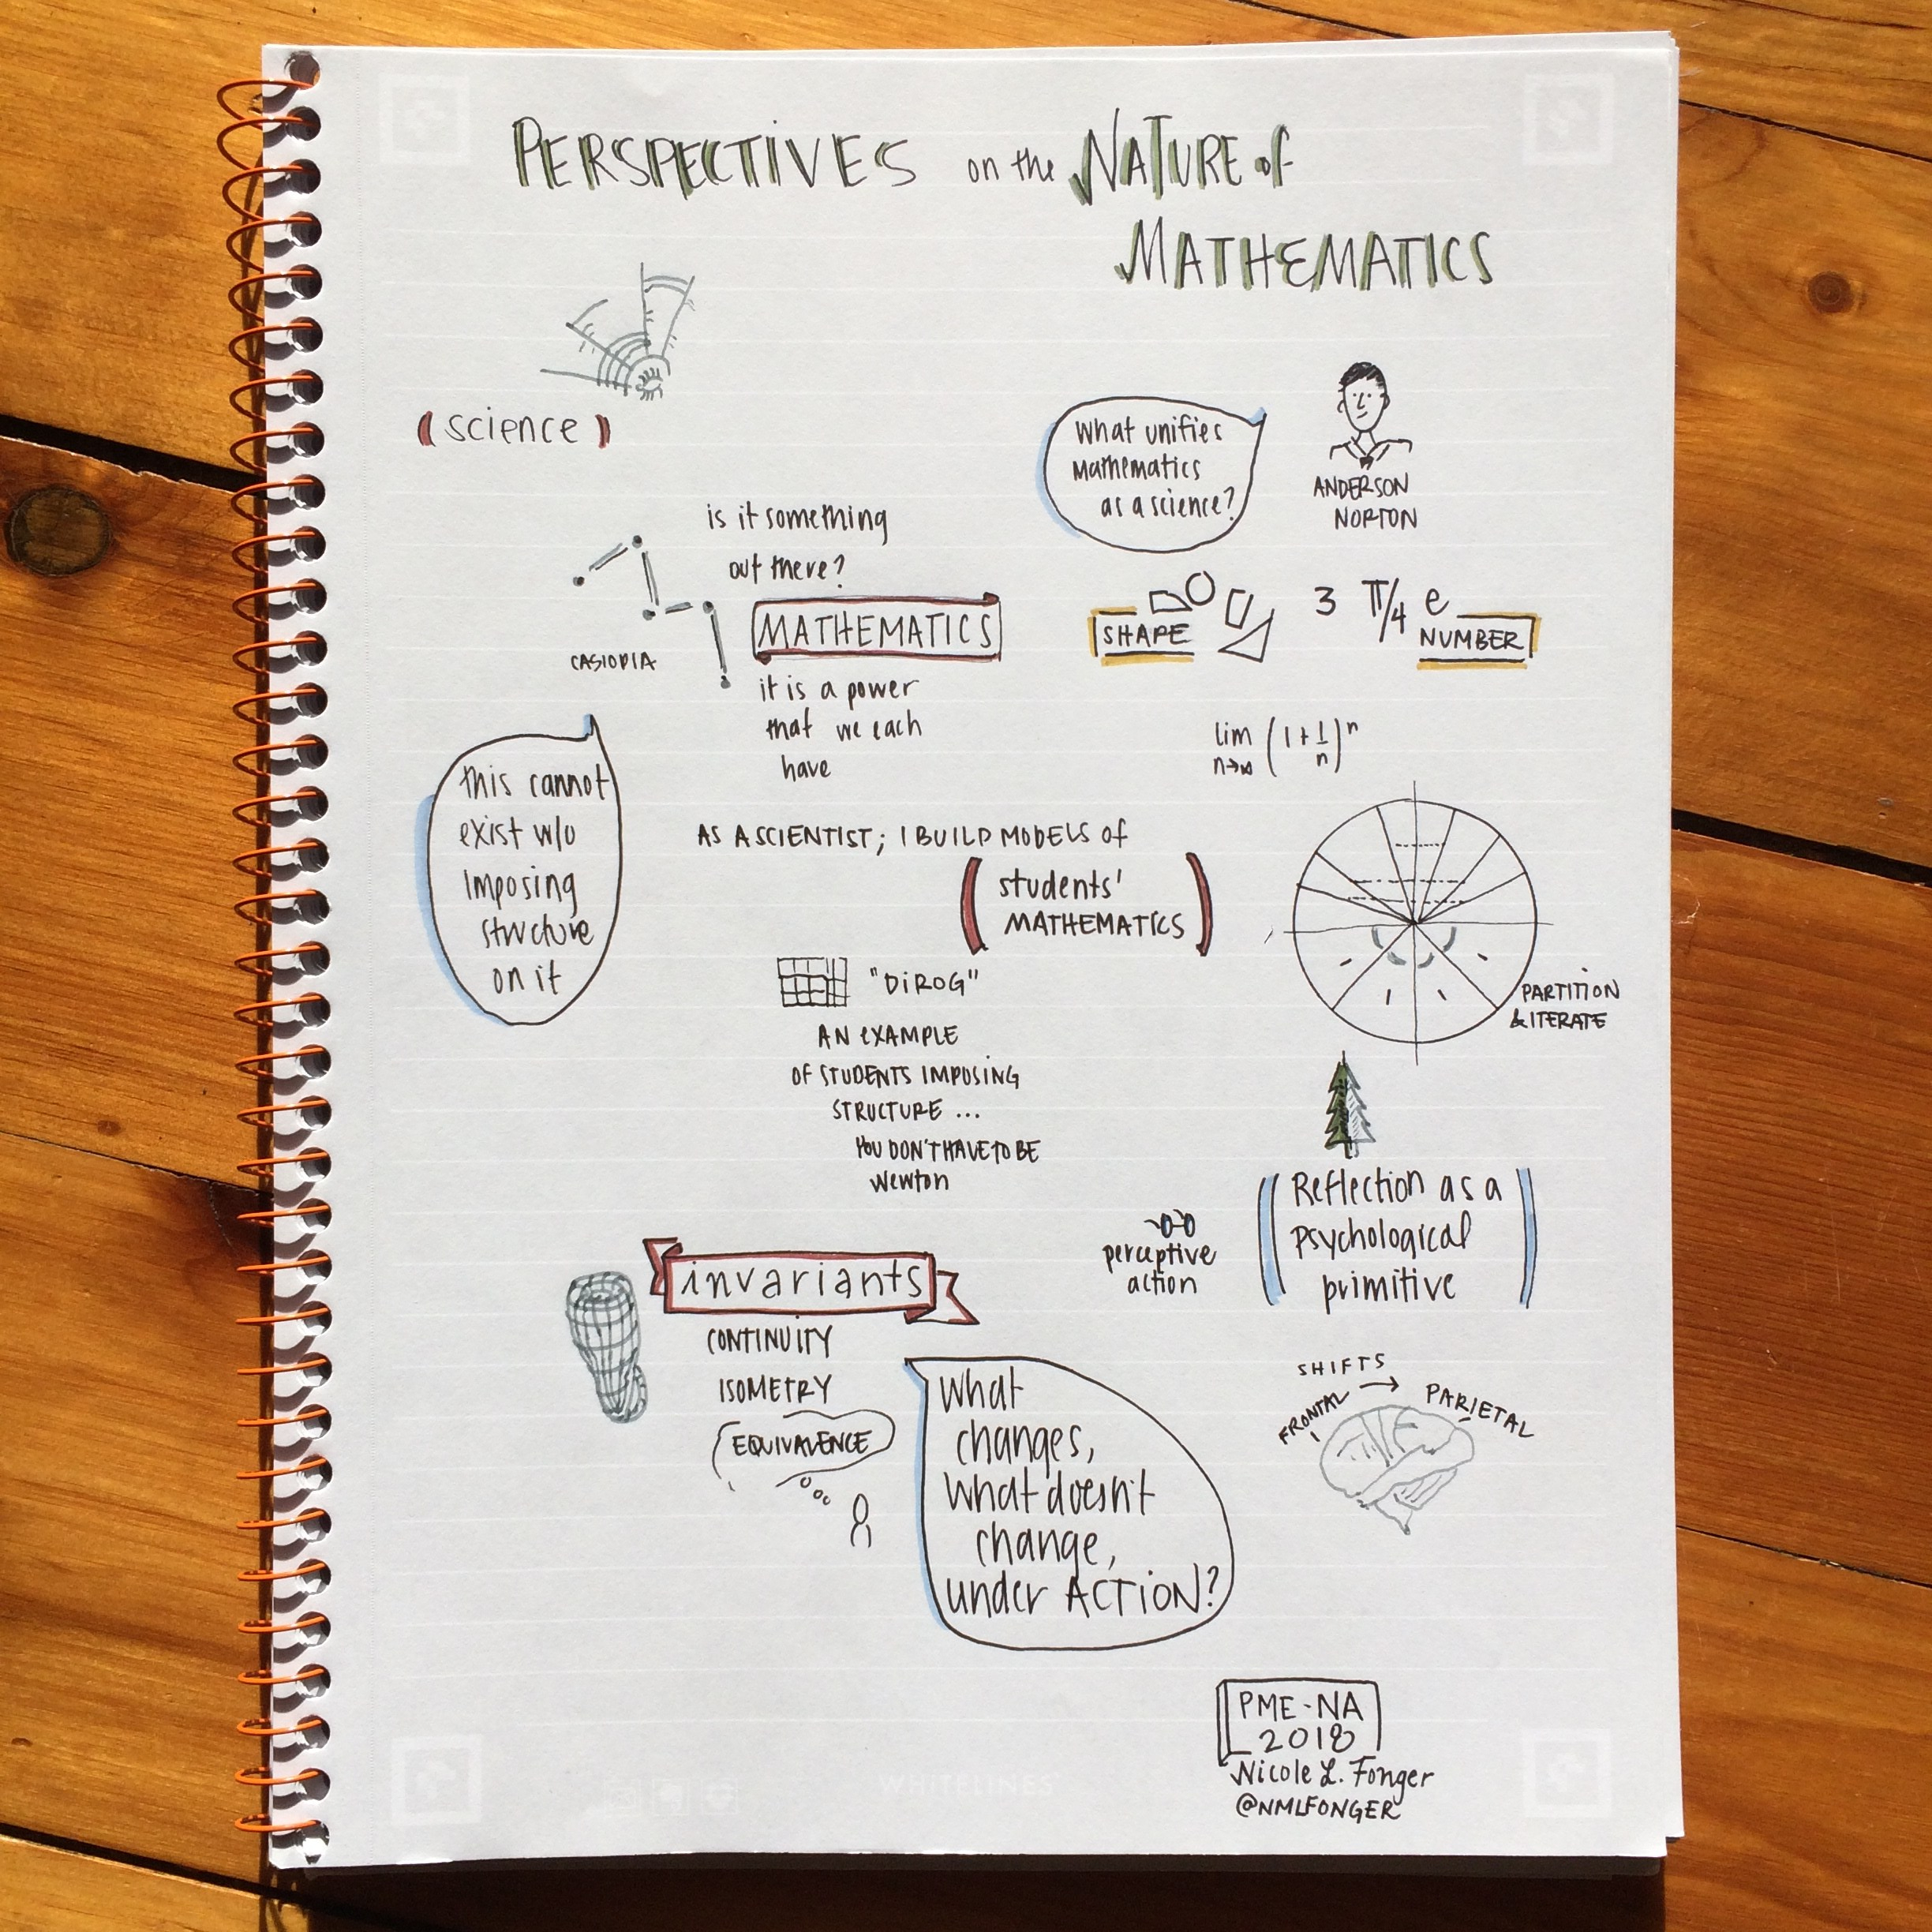 PERSPECTIVES on the NATURE of
MATHEMATICS
(science)
What unifies
mathematics
as a science?
ANDERSON
NORTON
is it something
out there?
MATHEMATICS
it is a power
that we each
have
CASIOPIA
SHAPE
3 π/4 e
NUMBER
lim (1 + 1/n)^n
n→∞
this cannot
exist w/o
imposing
structure
on it
AS A SCIENTIST; I BUILD MODELS of
(students'
MATHEMATICS)
"DiROG"
AN EXAMPLE
OF STUDENTS IMPOSING
STRUCTURE ...
YOU DON'T HAVE TO BE
Newton
PARTITION
& ITERATE
(Reflection as a
psychological
primitive)
perceptive
action
invariants
CONTINUITY
ISOMETRY
EQUIVALENCE
What
changes,
What doesn't
change,
under ACTiON?
SHIFTS
FRONTAL → PARIETAL
PME-NA
2018
Nicole L. Fonger
@NMLFONGER
WHITELINES